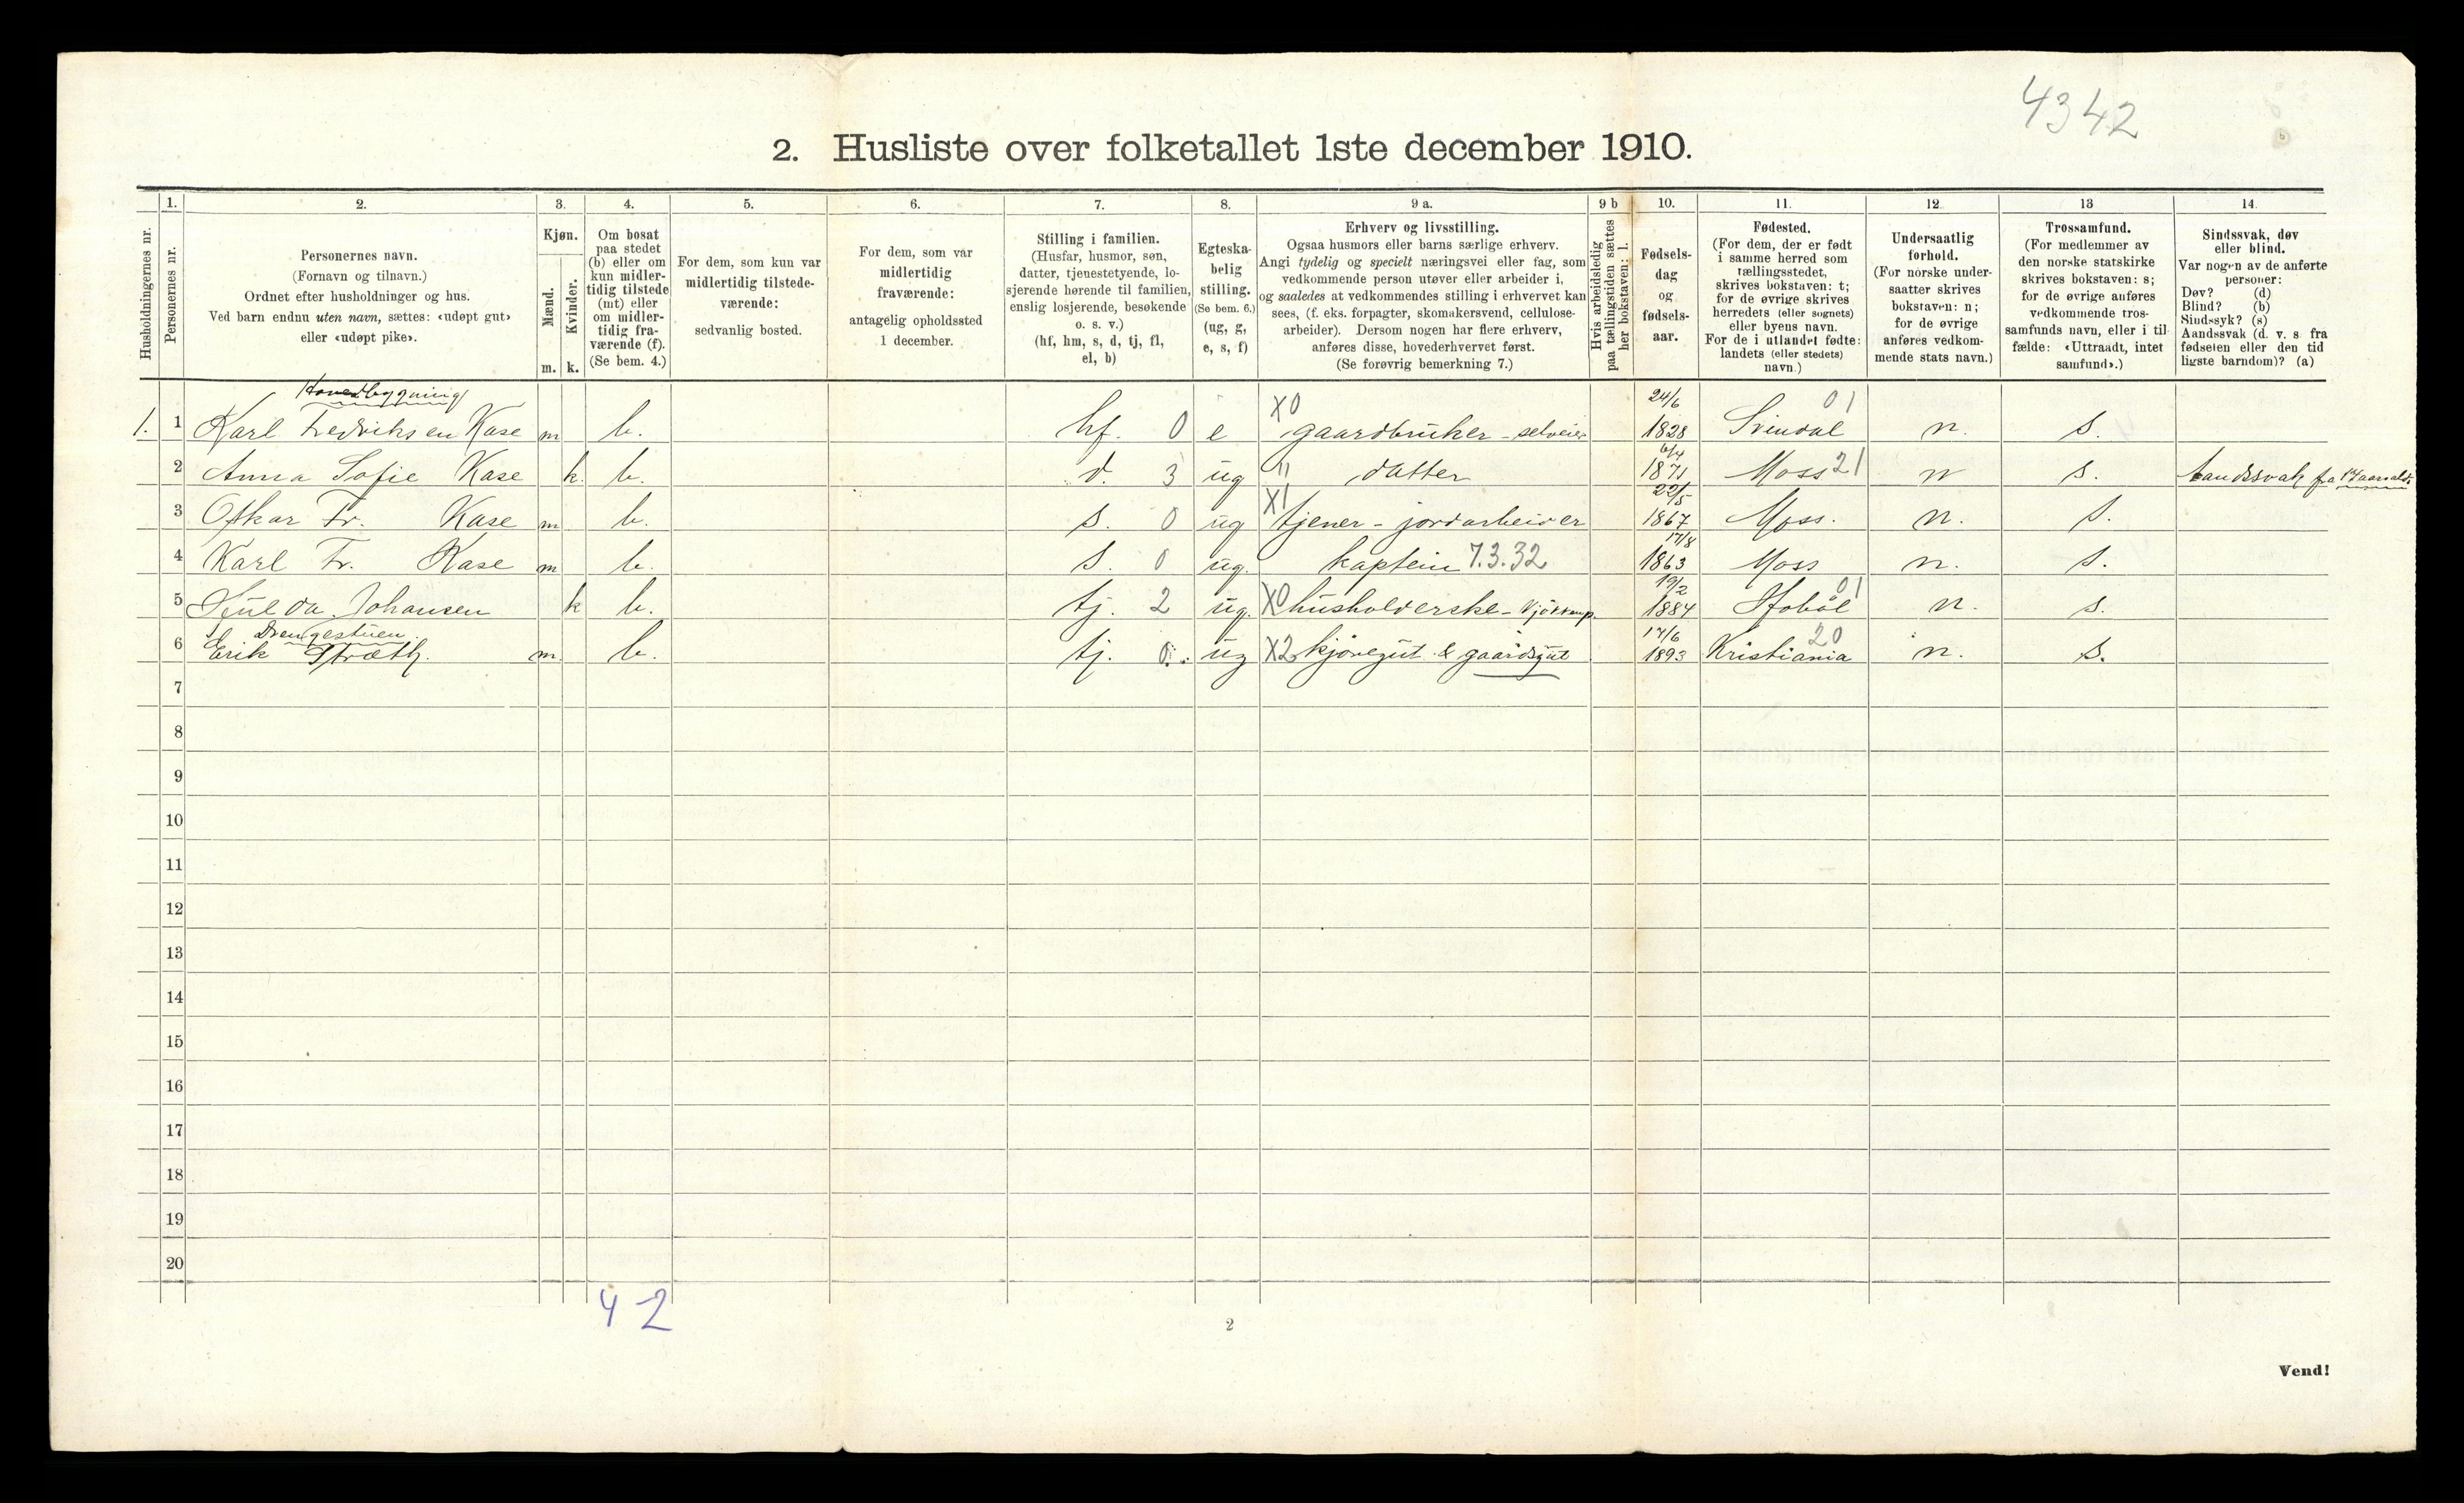 4342
2. Husliste over folketallet 1ste december 1910.
Husholdningernes nr.
1.
Personernes nr.
2.
Personernes navn.
(Fornavn og tilnavn.)
Ordnet efter husholdninger og hus.
Ved barn endnu uten navn, sættes: «udøpt gut»
eller «udøpt pike».
3.
Kjøn.
Mænd.
Kvinder.
m. k.
4.
Om bosat
paa stedet
(b) eller om
kun midler-
tidig tilstede
(mt) eller
om midler-
tidig fra-
værende (f).
(Se bem. 4.)
5.
For dem, som kun var
midlertidig tilstede-
værende:
sedvanlig bosted.
6.
For dem, som var
midlertidig
fraværende:
antagelig opholdssted
1 december.
7.
Stilling i familien.
(Husfar, husmor, søn,
datter, tjenestetyende, lo-
sjerende hørende til familien,
enslig losjerende, besøkende
o. s. v.)
(hf, hm, s, d, tj, fl,
el, b)
8.
Egteska-
belig
stilling.
(Se bem. 6.)
(ug, g,
e, s, f)
9 a.
Erhverv og livsstilling.
Ogsaa husmors eller barns særlige erhverv.
Angi tydelig og specielt næringsvei eller fag, som
vedkommende person utøver eller arbeider i,
og saaledes at vedkommendes stilling i erhvervet kan
sees, (f. eks. forpagter, skomakersvend, cellulose-
arbeider). Dersom nogen har flere erhverv,
anføres disse, hovederhvervet først.
(Se forøvrig bemerkning 7.)
9 b
Hvis arbeidsledig
paa tællingstiden sættes
her bokstaven: l.
10.
Fødsels-
dag
og
fødsels-
aar.
11.
Fødested.
(For dem, der er født
i samme herred som
tællingsstedet,
skrives bokstaven: t;
for de øvrige skrives
herredets (eller sognets)
eller byens navn.
For de i utlandet fødte:
landets (eller stedets)
navn.)
12.
Undersaatlig
forhold.
(For norske under-
saatter skrives
bokstaven: n;
for de øvrige
anføres vedkom-
mende stats navn.)
13
Trossamfund.
(For medlemmer av
den norske statskirke
skrives bokstaven: s;
for de øvrige anføres
vedkommende tros-
samfunds navn, eller i til-
fælde: «Uttraadt, intet
samfund».)
14.
Sindssvak, døv
eller blind.
Var nogen av de anførte
personer:
Døv? (d)
Blind? (b)
Sindssyk? (s)
Aandssvak (d. v. s. fra
fødselen eller den tid
ligste barndom)? (a)
Hovedbygning
1. 1 Karl Fredriksen Kase m b. hf. 0 e X0 gaardbruker - selveier 24/6 1828 Svindal 01 n. s.
2 Anna Sofie Kase k. b. d. 3 ug " datter 6/4 1871 Moss 21 n s. Aandssvak fra
3 Oskar Fr. Kase m b. s. 0 ug X1 tjener - jordarbeider 22/5 1867 Moss. n. s.
4 Karl Fr. Kase m b. s. 0 ug. kaptein 7.3.32 17/8 1863 Moss n. s.
5 Hulda Johansen k b. tj. 2 ug. X0 husholderske - 19/2 1884 Hobøl 01 n. s.
Drengestuen
6 Erik Stræth. m. b. tj. 0. ug X2 kjøregut & gaardsgut 17/6 1893 Kristiania 20 n. s.
7
8
9
10
11
12
13
14
15
16
17
18
19
20
4 2
2
Vend!